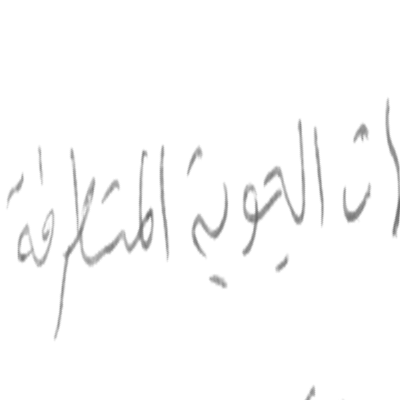 ات الجوية المتطرفة